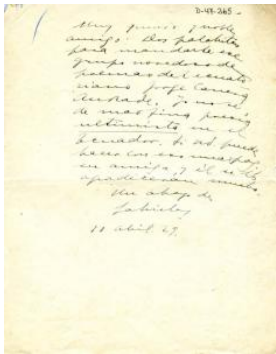 D-43-265
Muy querido y noble
amigo: Dos palabritas
para mandarte ese
grupo novedoso de
poemas del ecuato
riano Jorge Carrera
Andrade. Yo no sé
de mas fina poesía
ultimista en el
Ecuador. Si Ud. puede
hacer con eso una pag.
su amiga, y él se lo
agradecerían mucho.
Un abrazo de
Gabriela
11 abril 29.